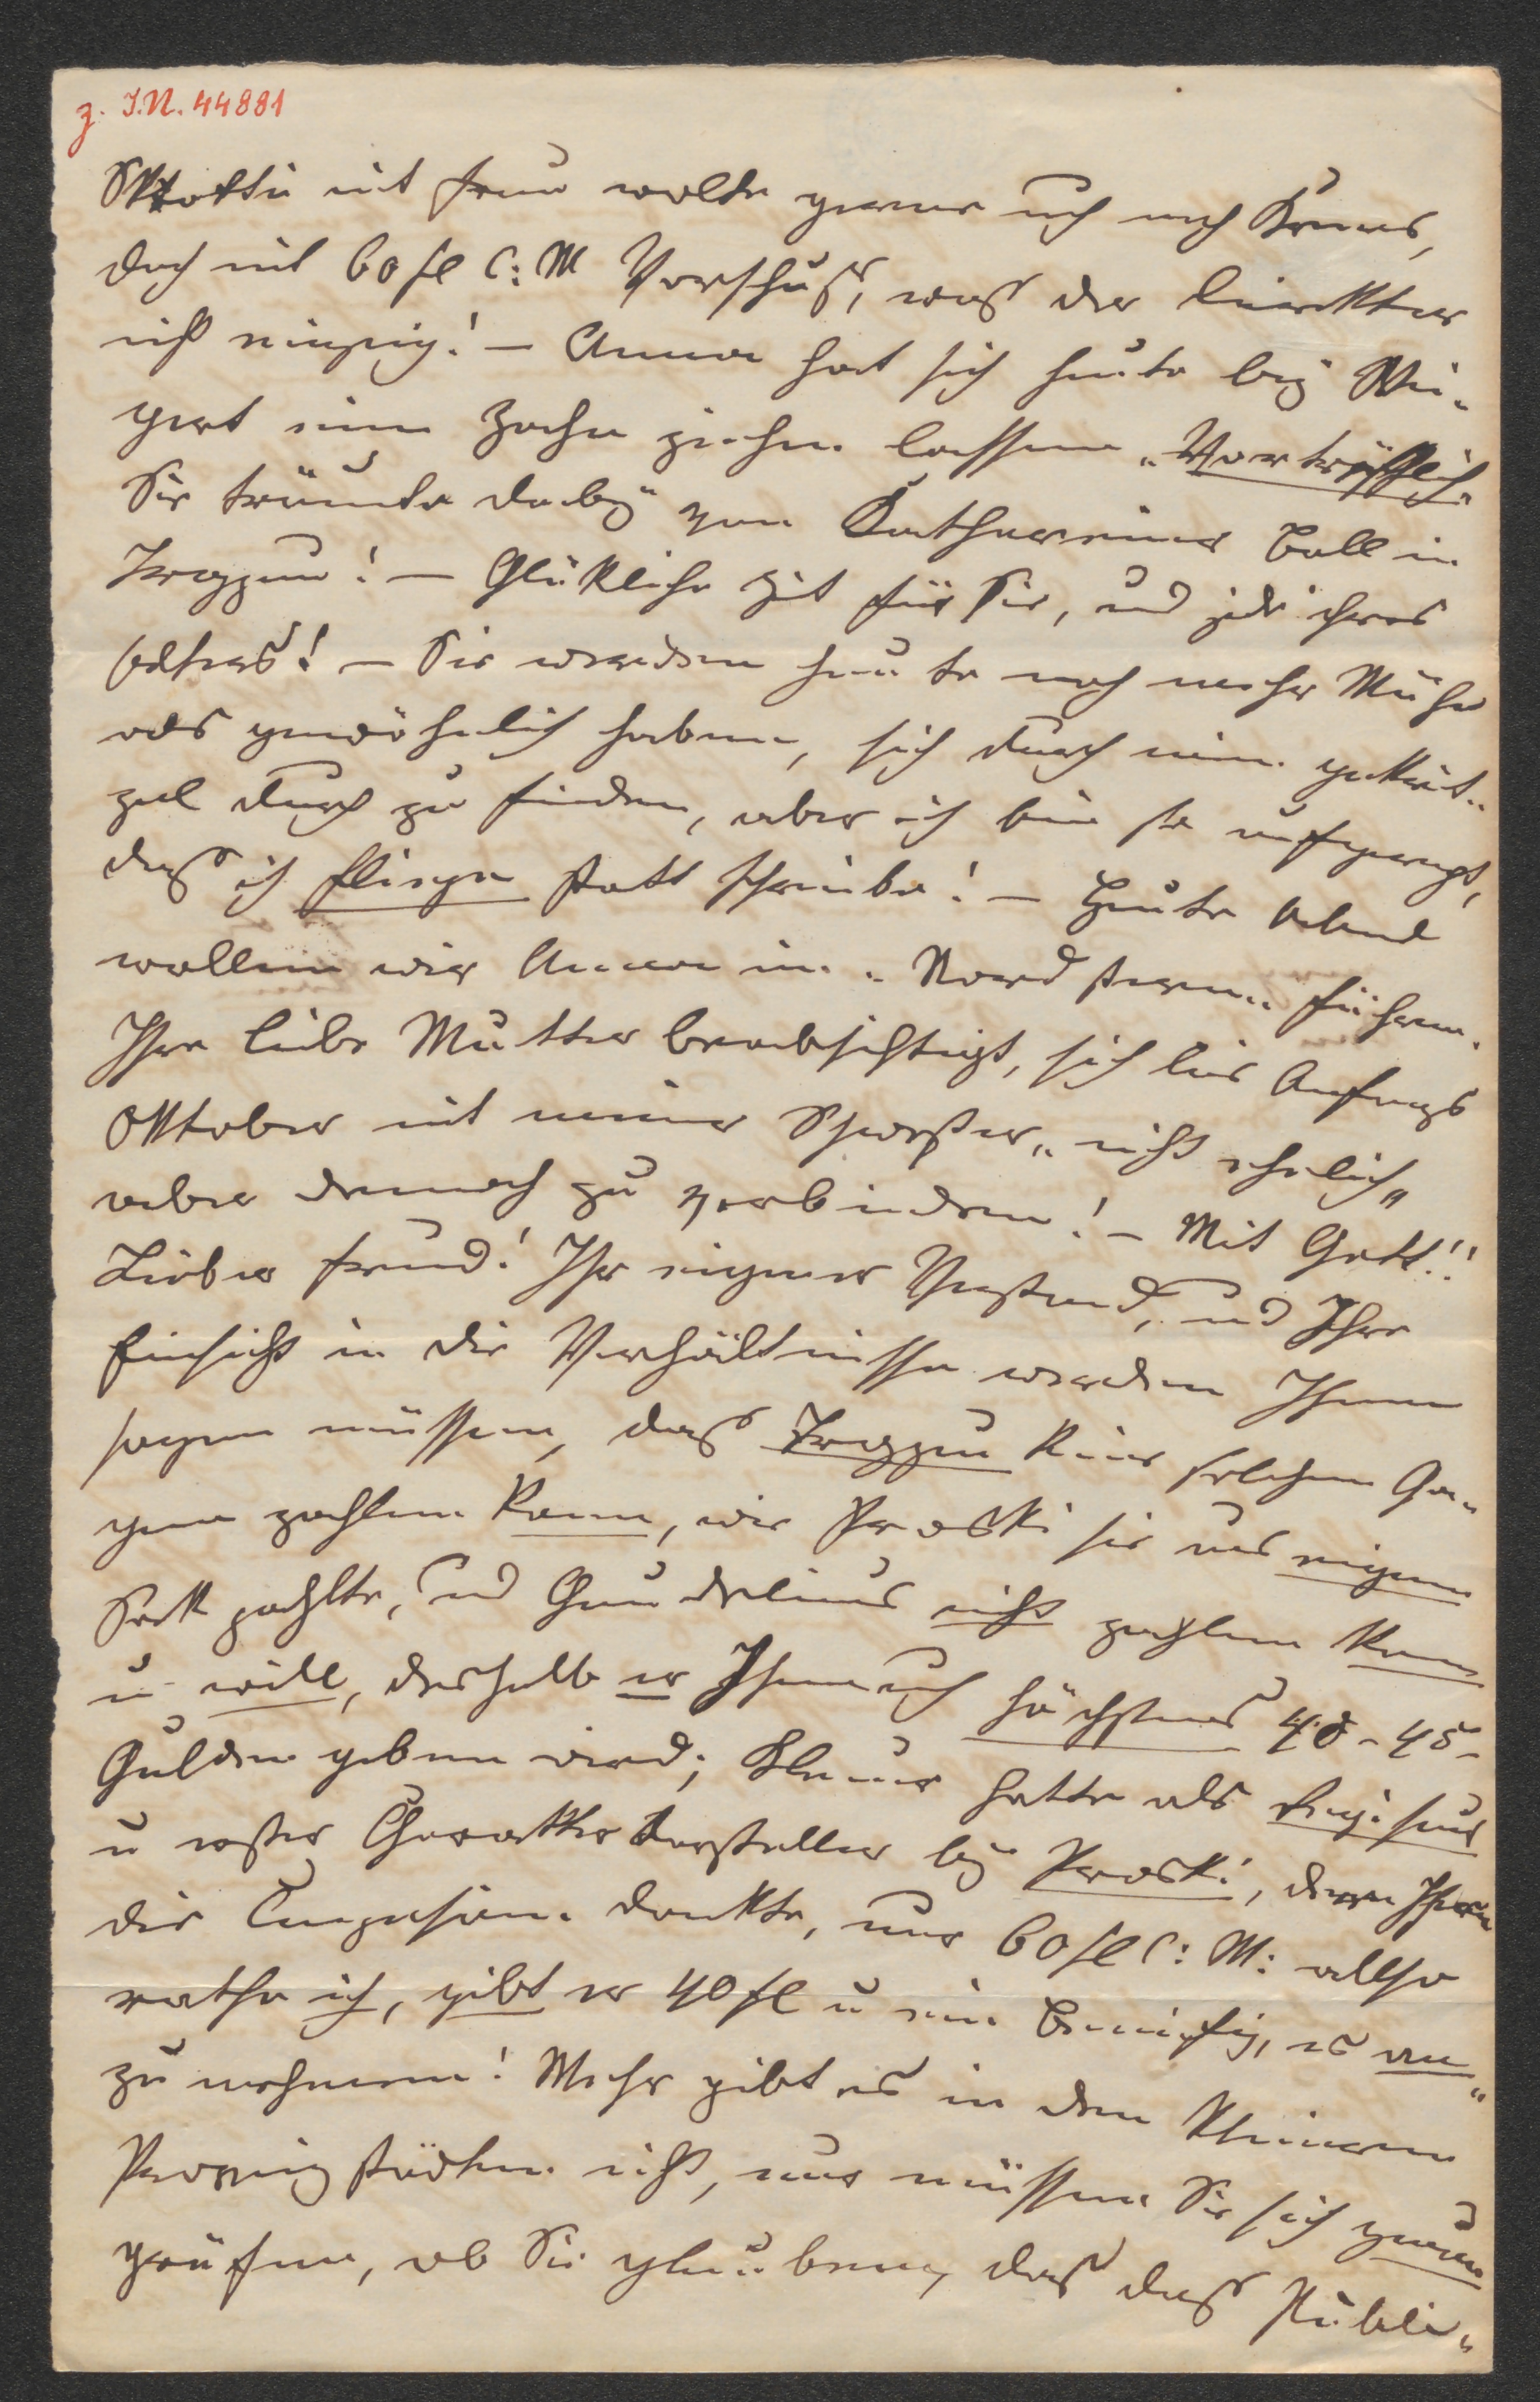 z. I.N. 44881
Skotti mit Frau wollte gerne auch nach Krems,
doch mit 60 fl C: M Vorschuß, was der Direktor
nicht einging! – Anna hat sich heute bey Wei-
gert einen Zahn ziehen lassen „Vortrefflich"
Sie träumte dabey vom Katharinen Ball in
Troppau! – Glükliche Zeit für Sie, und jede ihres
Alters! – Sie werden heute noch mehr Mühe
als gewöhnlich haben, sich durch mein gekrit-
zel durch zu finden, aber ich bin so aufgeregt,
daß ich fliege statt schreibe! – Heute Abend
wollen wir Anna in „Nordstern" führen.
Ihre liebe Mutter beabsichtigt, sich bis Anfangs
Oktober mit meiner Schwester „nicht ehelich"
aber dennoch zu verbinden! – Mit Gott!!
Lieber Freund! Ihr eigener Verstand, und Ihre
Einsicht in die Verhältnisse werden Ihnen
sagen müssen, daß Troppau keine solchen Ga-
gen zahlen kann, wie Proski sie aus eigenem
Sack zahlte, und Gaudelius nicht zahlen kann
u will, deshalb er Ihnen auch höchstens 40 – 45 –
Gulden geben wird; Klemer hatte als Regisseur
u erster Charakter Darsteller bey Proski, deren Ihnen
die Compasion dankte, nur 60 fl C: M: allso
rathe ich, gibt er 40 fl u ein Benefiz, es an-
zu nehmen! Mehr gibt es in den kleinern
Provinzstädten nicht, nur müssen Sie sich genau
prüfen, ob Sie glauben, daß daß Publi-